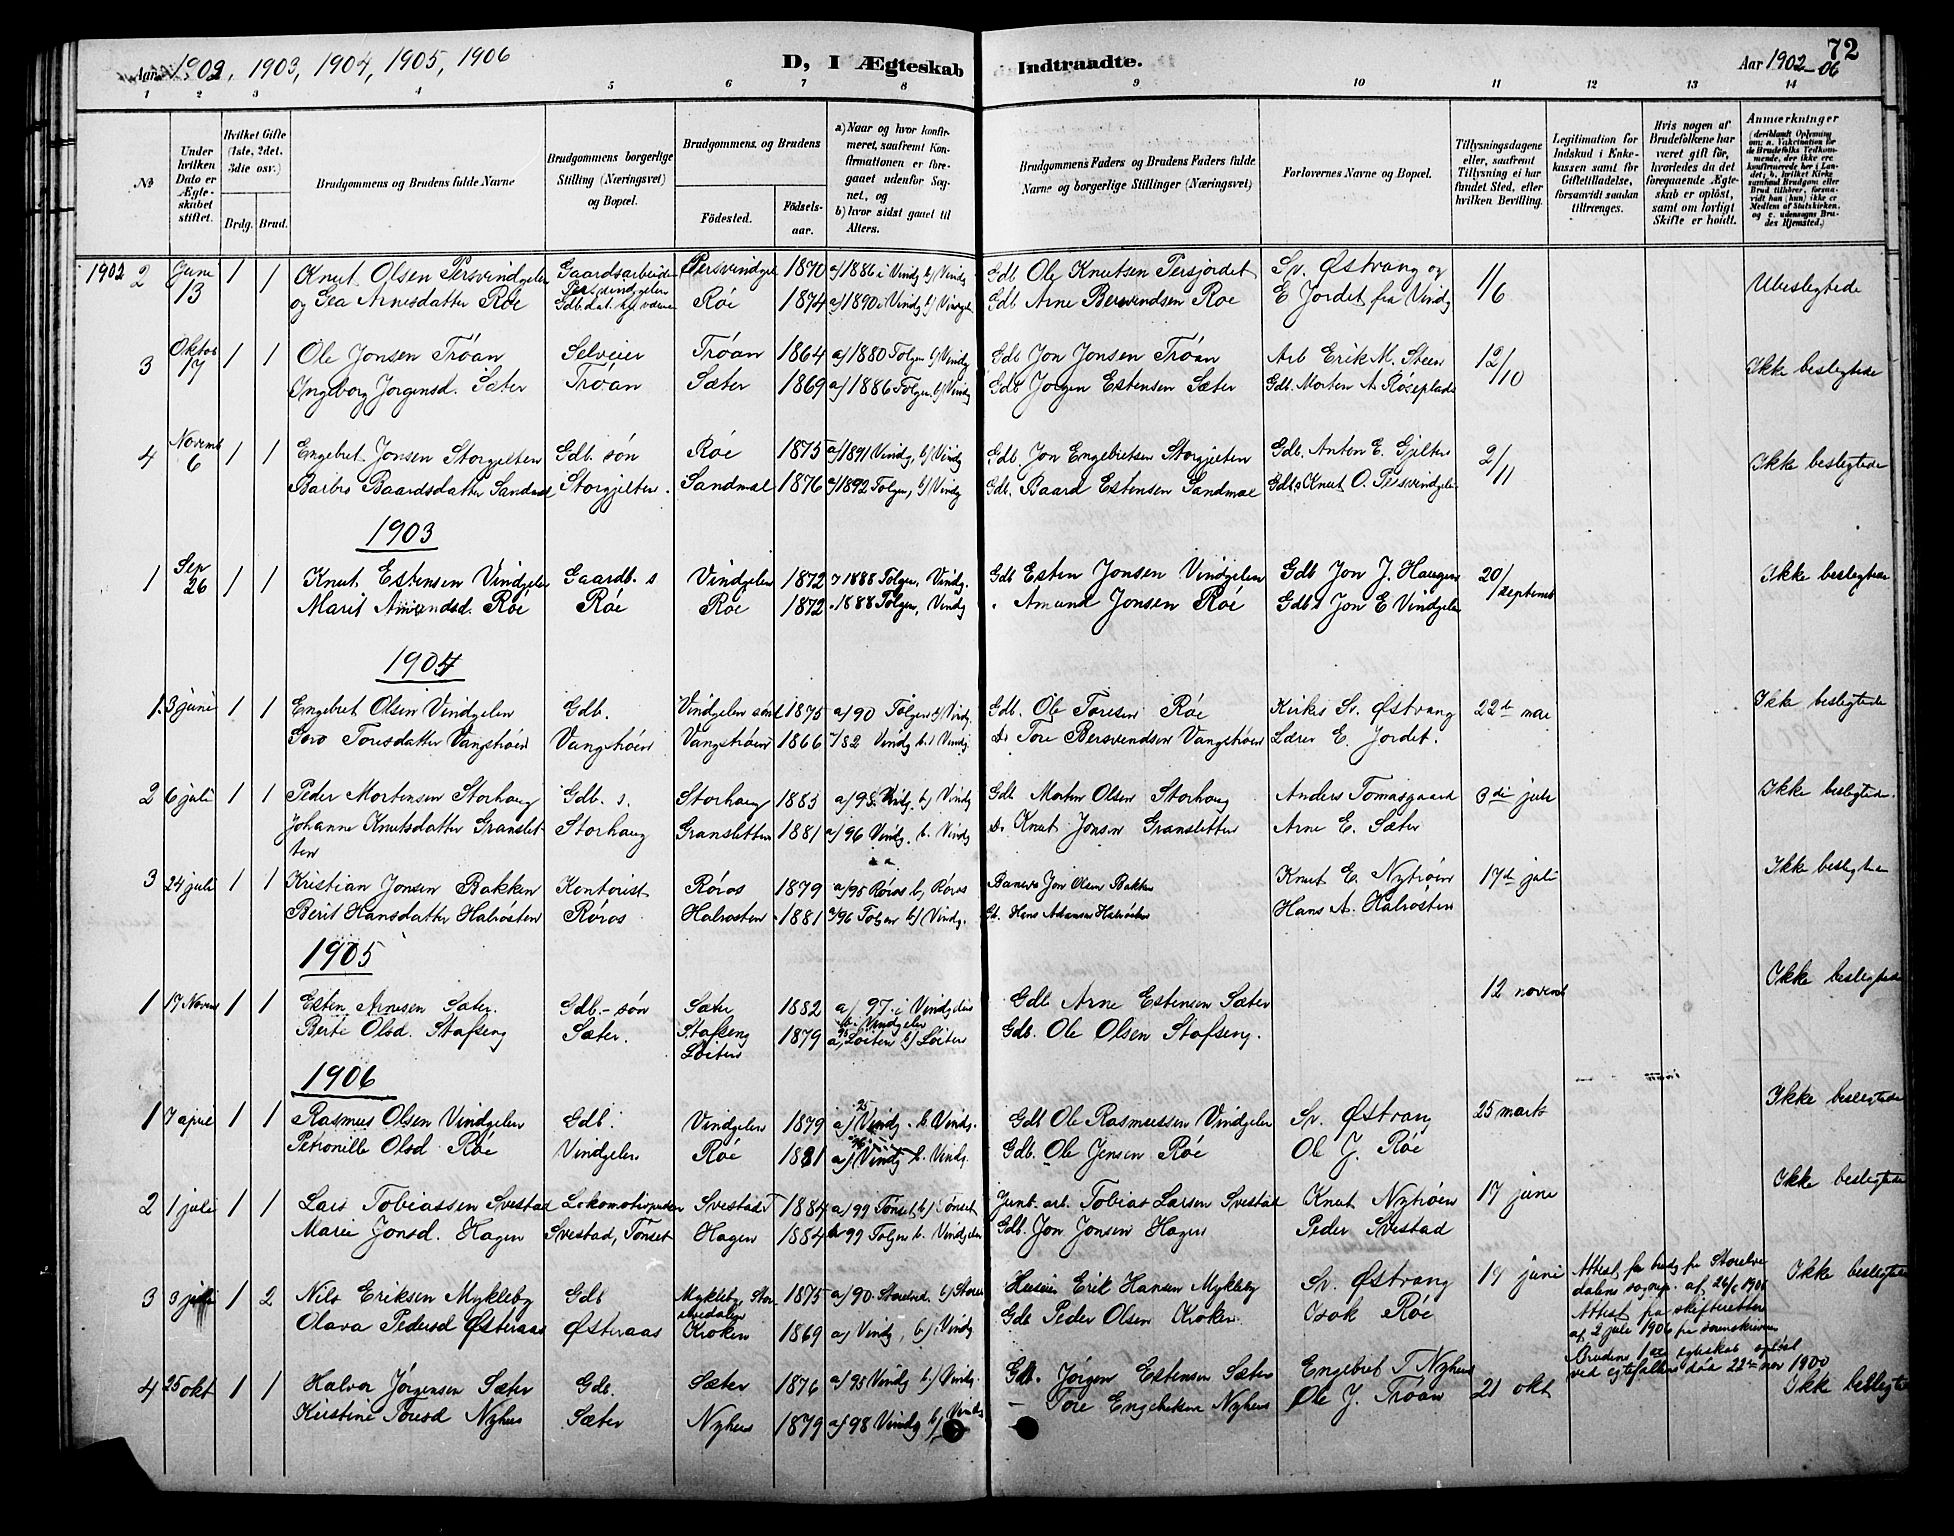 Aar 1902, 1903, 1904, 1905, 1906
D, I Ægteskab Indtraadte.
72
Aar 1902-06
1 2 3 4 5 6 7 8 9 10 11 12 13 14
No
Under hvilken Dato er Ægteskabet stiftet.
Hvilket Gifte (1ste, 2det, 3die osv.)
Brdg. Brud.
Brudgommens og Brudens fulde Navne
Brudgommens borgerlige Stilling (Næringsvei) og Bopæl.
Brudgommens og Brudens
Födested.
Födselsaar.
a) Naar og hvor konfirmeret, saafremt Konfirmationen er foregaaet udenfor Sognet, og
b) hvor sidst gaaet til Alters.
Brudgommens Faders og Brudens Faders fulde Navne og borgerlige Stillinger (Næringsvei)
Forlovernes Navne og Bopæl.
Tillysningsdagene eller, saafremt Tillysning ei har fundet Sted, efter hvilken Bevilling.
Legitimation for Indskud i Enkekassen samt for Giftetilladelse, forsaavidt saadan tiltrænges.
Hvis nogen af Brudefolkene har været gift før, hvorledes da det foregaaende Ægteskab er opløst, samt om lovligt Skifte er holdt.
Anmærkninger
1902 2 Juni 13 1 1 Knut Olsen Persvindgelen Gaardsarbeider Persvindgel 1870 a/1886 i Vindg b/ Vindg Gdb Ole Knutsen Persjordet Sv. Østrang og 1/6 Ubeslegtede
og Gea Arnesdatter Røe Røe 1874 a/1890 i Vindg b/ Vindgel Gdb Arne Bersvendsen Røe E Jordet fra Vindg
3 Oktob 17 1 1 Ole Jonsen Trøan Selveier Trøan 1864 a/1880 Tolgen b/ Vindg Gdb Jon Jonsen Trøan Arb Erik M. Steen 12/10 Ikke beslegtede
Ingeborg Jorgensd. Sæter Trøan Sæter 1869 a/1886 Tolgen b/ Vindg Gdb Jorgen Estensen Sæter Gdb. Morten A Røseplads
4 Novemb 6 1 1 Engebret Jonsen Storgjelten Gdb. søn Røe 1875 a/1891 Vindg, b/ Vindg Gdb. Jon Engebretsen Storgjelten Gdb. Anton E. Gjelten 2/11 Ikke beslegtede
Barbro Baardsdatter Sandmæl Storgjelten. Sandmæl 1876 a/1892 Tolgen, b/ Vindg Gdb. Baard Estensen Sandmæl Gdbs Knut O. Persvindgelen
1903
1 Sep 26 1 1 Knut Estensen Vindgelen Gaardb. s Vindgelen 1872 1888 Tolgen, Vindg. Gdb Esten Jonsen Vindgelen Gdb Jon J. Haugen 20/septemb Ikke beslegtede
Marit Amundsd. Røe Røe Røe 1872 1888 Tolgen, Vindg " Amund Jonsen Røe Gdbs Jon E Vindgelen
1904
1. 3 juni 1 1 Engebret Olsen Vindgelen Gdb. Vindgelen 1875 a/90 Tolgen b/ Vindg. Gdb. Ole Toresen Røe Kirkes Sv. Østrang 22de mai Ikke beslegtede
Goro Toresdatter Vangshøen Vangshøen Vangshøen 1866 /82 Vindg b/ Vindg. Do Tore Bersvendsen Vangshøen Lærer E. Jordet.
2 6 juli 1 1 Peder Mortensen Storhaug Gdb. s. Storhaug 1883 a/98 Vindg. b/ Vindg Gdb Morten Olsen Storhaug Anders Tomasgaard 3die juli Ikke beslegtede.
Johanne Knutsdatter Granslet- Storhaug Gransletten 1881 a/96 Vindg. b. Vindg Do Knut Jonsen Gransletten Arne E. Sæter
ten
3 24 juli 1 1 Kristian Jonsen Bakken Kontorist Røros 1879 a/95 Røros b/ Røros Jon Olsen Bakken Knut E. Nytrøen 17de juli Ikke beslegtede
Berit Hansdatter Halvosten Røros Halvosten 1881 a/96 Tolgen b/ Vindg. Hans A. Halvosten
1905
1 17 Novem 1 1 Esten Arnesen Sæter. Gdb.-søn Sæter 1882 a/ 97. i Vindgelen Gdb Arne Estensen Sæter 12 novemb Ikke beslegtede
b. Vindgelen
Berte Olsd. Stafseng Sæter. Stafseng Løiten 1879 a/ Løiten b/ Løiten Gdb. Ole Olsen Stafseng.
1906
1 7 april 1 1 Rasmus Olsen Vindgelen Gdb. Vindgelen 1879 a/ Vindg. b. Vindg. Gdb Ole Rasmussen Vindgelen Sv. Østrang 25 marts Ikke beslegtede
Petronille Olsd Røe Vindgelen Røe 1881 a/ Vindg b. Vindg. Gdb. Ole Jensen Røe Ole J. Røe
2 1 juli 1 1 Lars Tobiassen Svestad Lokomotivpudser Svestad 1884 a/99 Tønset b/ Tønset Jernb. arb. Tobias Larsen Svestad Knut Nytrøen 17 june Ikke beslegtede
Marie Jonsd. Hagen Svestad, Tønset Hagen 1884 99 Tolgen b. Vindgelen Gdb. Jon Jonsen Hagen Peder Svestad
3 3 juli 1 2 Nils Eriksen Mykleby Gdb Mykleby Storelvedalen 1875 a/90 Storelvd. b/ Storel Husm Erik Hansen Mykleby Sv. Østrang 17 juni Attest for brudg fra Storelvedalens sogepr. af 26/6 1906 Ikke beslegtede
Olava Pedersd Østeraas Østeraas Kroken 1869 a/ Vindg, b/ Vindg Gdb Peder Olsen Kroken Isak Røe Attest fra skifteretten
af 2 juli 1906 fra sorenskriveren
Brudens 1ste egteskab opløst
ved egtefællens død 22de nov 1900
4 25 okt 1 1 Halvor Jørgensen Sæter Gdb. Sæter 1876 a/98 Vindg b/ Vindg. Gdb. Jørgen Estensen Sæter Engebret T Nyhus 21 okt Ikke beslegtede
Kristine Toresd Nyhus Sæter Nyhus 1879 a/98 Vindg b/ Vindg — Tore Engebretsen Nyhus Ole J. Trøan